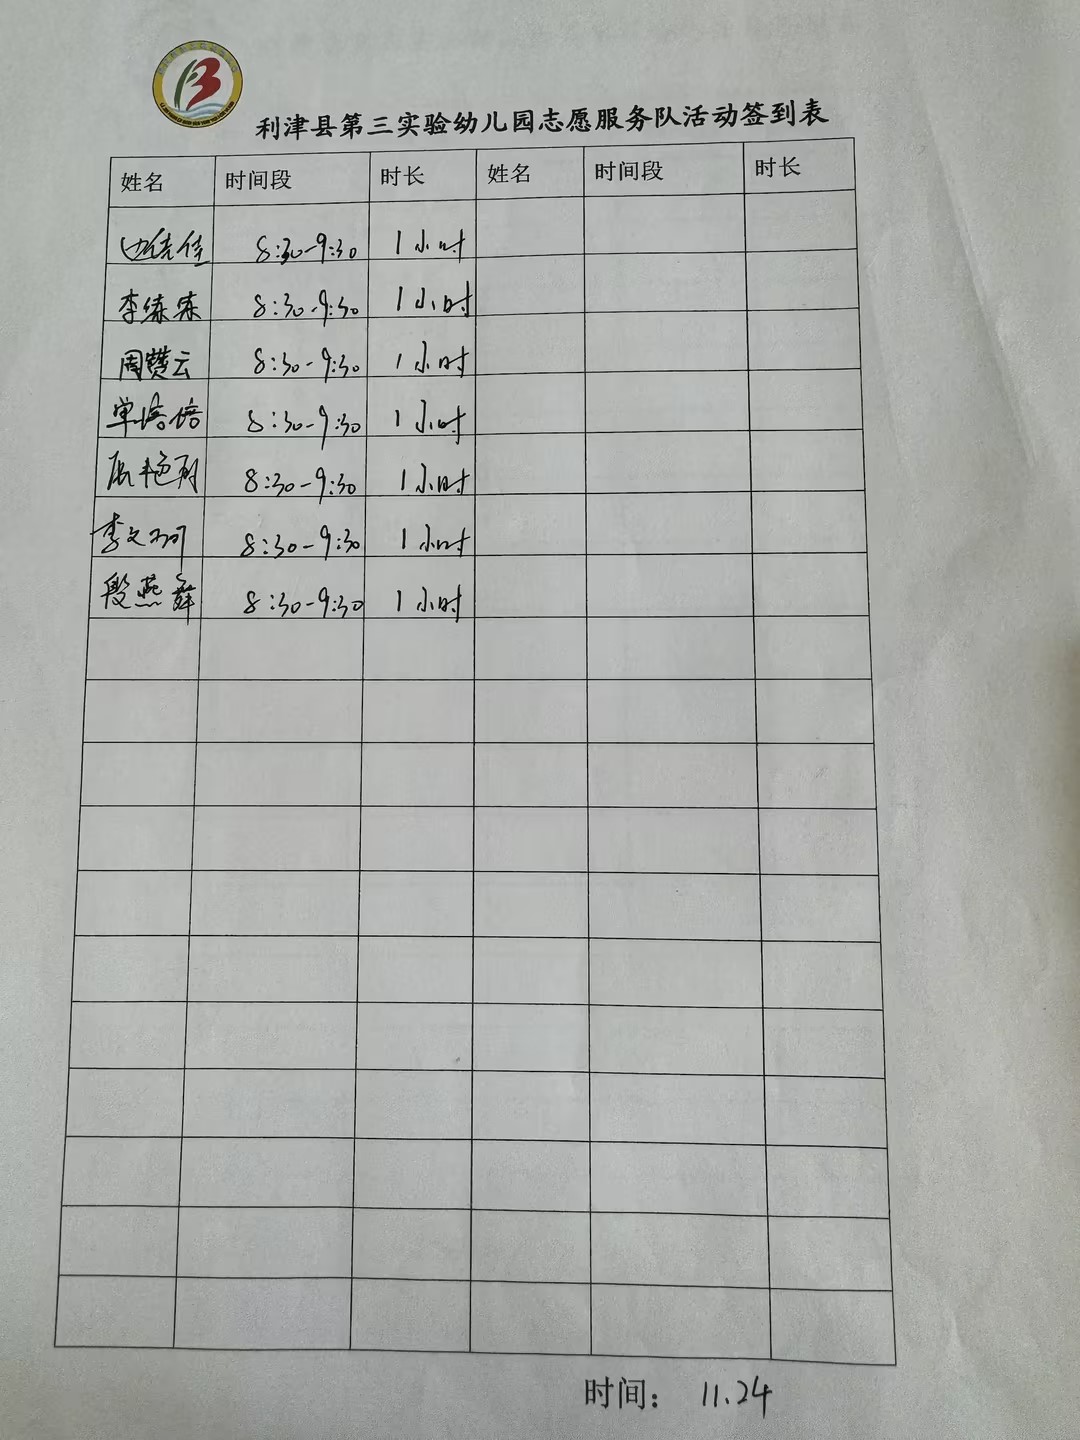 利津县第三实验幼儿园志愿服务队活动签到表
姓名 时间段 时长 姓名 时间段 时长
8:30-9:30 1小时
李 8:30-9:30 1小时
周赞云 8:30-9:30 1小时
单培培 8:30-9:30 1小时
8:30-9:30 1小时
李文珂 8:30-9:30 1小时
殷燕舞 8:30-9:30 1小时
时间: 11.24